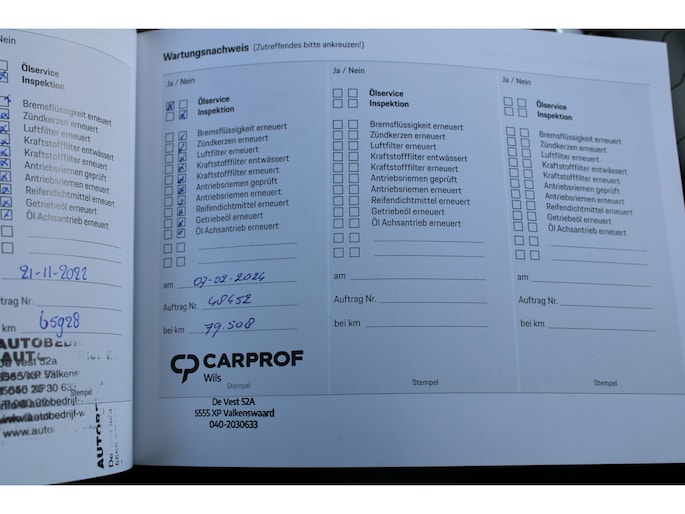 Nein
Ölservice
Inspektion
Bremsflüssigkeit erneuert
Zündkerzen erneuert
Luftfilter erneuert
Kraftstofffilter entwässert
Kraftstofffilter erneuert
Antriebsriemen geprüft
Antriebsriemen erneuert
Reifendichtmittel erneuert
Getriebeöl erneuert
Öl Achsantrieb erneuert
21-11-2022
Auftrag Nr.
km 65928
AUTOBED
De Vest 52a
Stempel
Wartungsnachweis (Zutreffendes bitte ankreuzen!)
Ja / Nein
Ölservice
Inspektion
Bremsflüssigkeit erneuert
Zündkerzen erneuert
Luftfilter erneuert
Kraftstofffilter entwässert
Kraftstofffilter erneuert
Antriebsriemen geprüft
Antriebsriemen erneuert
Reifendichtmittel erneuert
Getriebeöl erneuert
Öl Achsantrieb erneuert
am 07-02-2024
Auftrag Nr. 48452
bei km 79.508
CARPROF
Wils
Stempel
De Vest 52A
5555 XP Valkenswaard
040-2030633
Ja / Nein
Ölservice
Inspektion
Bremsflüssigkeit erneuert
Zündkerzen erneuert
Luftfilter erneuert
Kraftstofffilter entwässert
Kraftstofffilter erneuert
Antriebsriemen geprüft
Antriebsriemen erneuert
Reifendichtmittel erneuert
Getriebeöl erneuert
Öl Achsantrieb erneuert
am
Auftrag Nr.
bei km
Stempel
Ja / Nein
Ölservice
Inspektion
Bremsflüssigkeit erneuert
Zündkerzen erneuert
Luftfilter erneuert
Kraftstofffilter entwässert
Kraftstofffilter erneuert
Antriebsriemen geprüft
Antriebsriemen erneuert
Reifendichtmittel erneuert
Getriebeöl erneuert
Öl Achsantrieb erneuert
am
Auftrag Nr.
bei km
Stempel